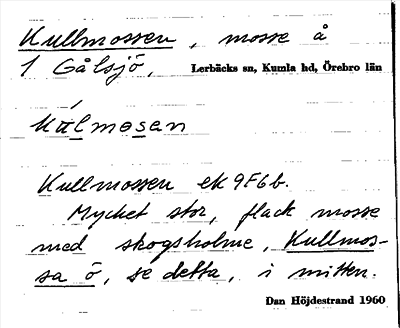 Kullmossen, mosse å
1 Gålsjö, Lerbäcks sn, Kumla hd, Örebro län
Kúlmosan
Kullmossen ek 9F6b.
Mycket stor, flack mosse
med skogsholme, Kullmos-
sa ö, se detta, i mitten.
Dan Höjdestrand 1960